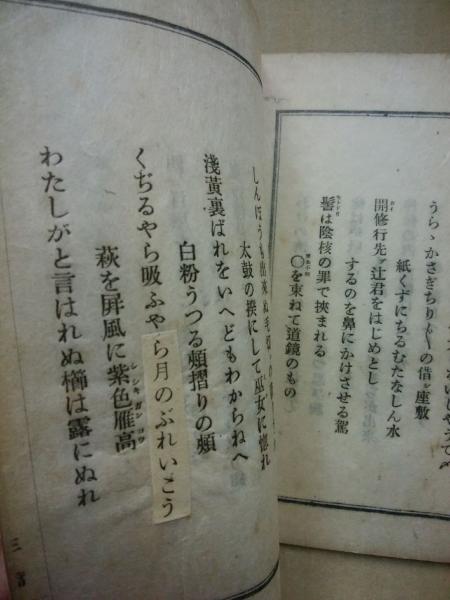 うらゝかさぎちり〳〵の借シ座敷
紙くずにちるむたなしん水
開修行先ツ辻君をはじめとし
するのを鼻にかけさせる駕
髻は陰核の罪で挾まれる
〇を束ねて道鏡のもの
しんぼうも出来ぬ毛切
太鼓の撥にして巫女に惚れ
淺黃裏ばれをいへどもわからねへ
白粉うつる頰摺りの頰
くぢるやら吸ふやら月のぶれいこう
萩を屛風に紫色雁高
シシキガンコウ
わたしがと言はれぬ櫛は露にぬれ
三